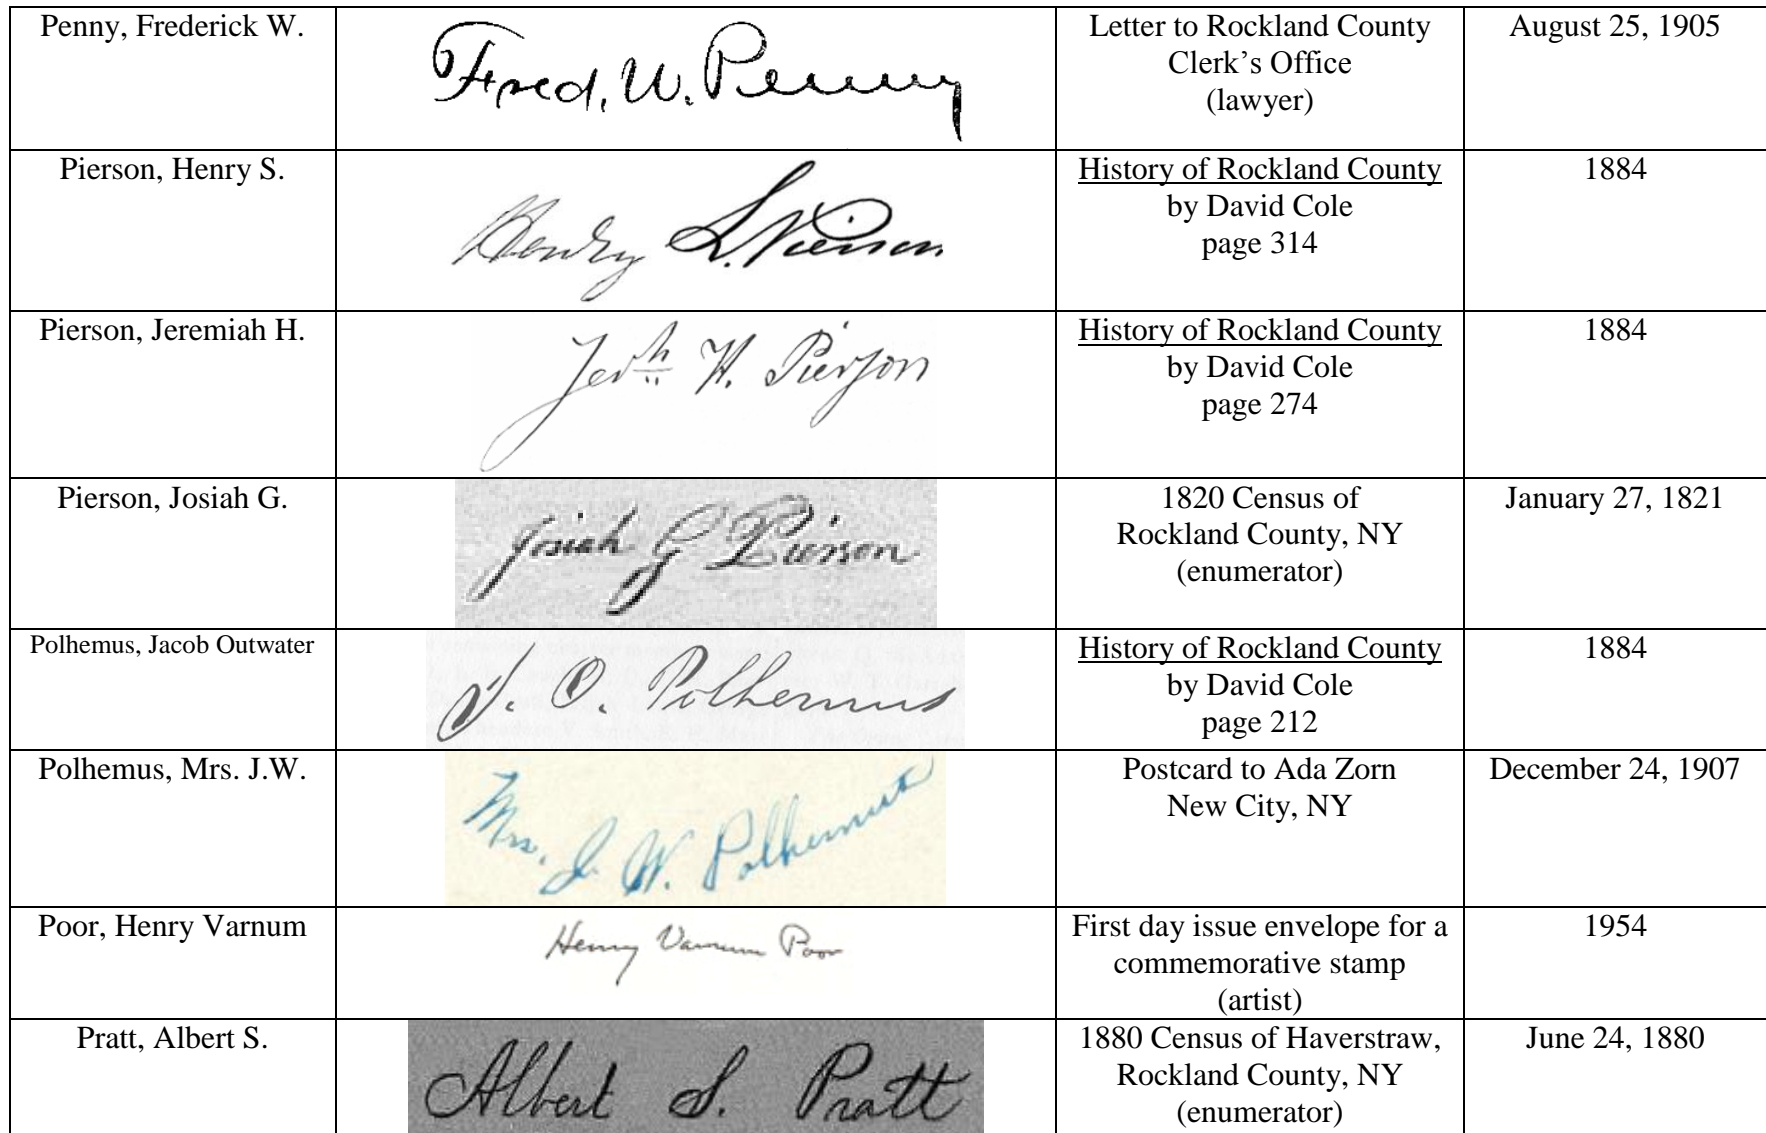 Penny, Frederick W.
Fred. W. Penny
Letter to Rockland County
Clerk's Office
(lawyer)
August 25, 1905
Pierson, Henry S.
Henry S. Pierson
History of Rockland County
by David Cole
page 314
1884
Pierson, Jeremiah H.
Jerh H. Pierson
History of Rockland County
by David Cole
page 274
1884
Pierson, Josiah G.
Josiah G Pierson
1820 Census of
Rockland County, NY
(enumerator)
January 27, 1821
Polhemus, Jacob Outwater
J. O. Polhemus
History of Rockland County
by David Cole
page 212
1884
Polhemus, Mrs. J.W.
Mrs. J. W. Polhemus
Postcard to Ada Zorn
New City, NY
December 24, 1907
Poor, Henry Varnum
Henry Varnum Poor
First day issue envelope for a
commemorative stamp
(artist)
1954
Pratt, Albert S.
Albert S. Pratt
1880 Census of Haverstraw,
Rockland County, NY
(enumerator)
June 24, 1880